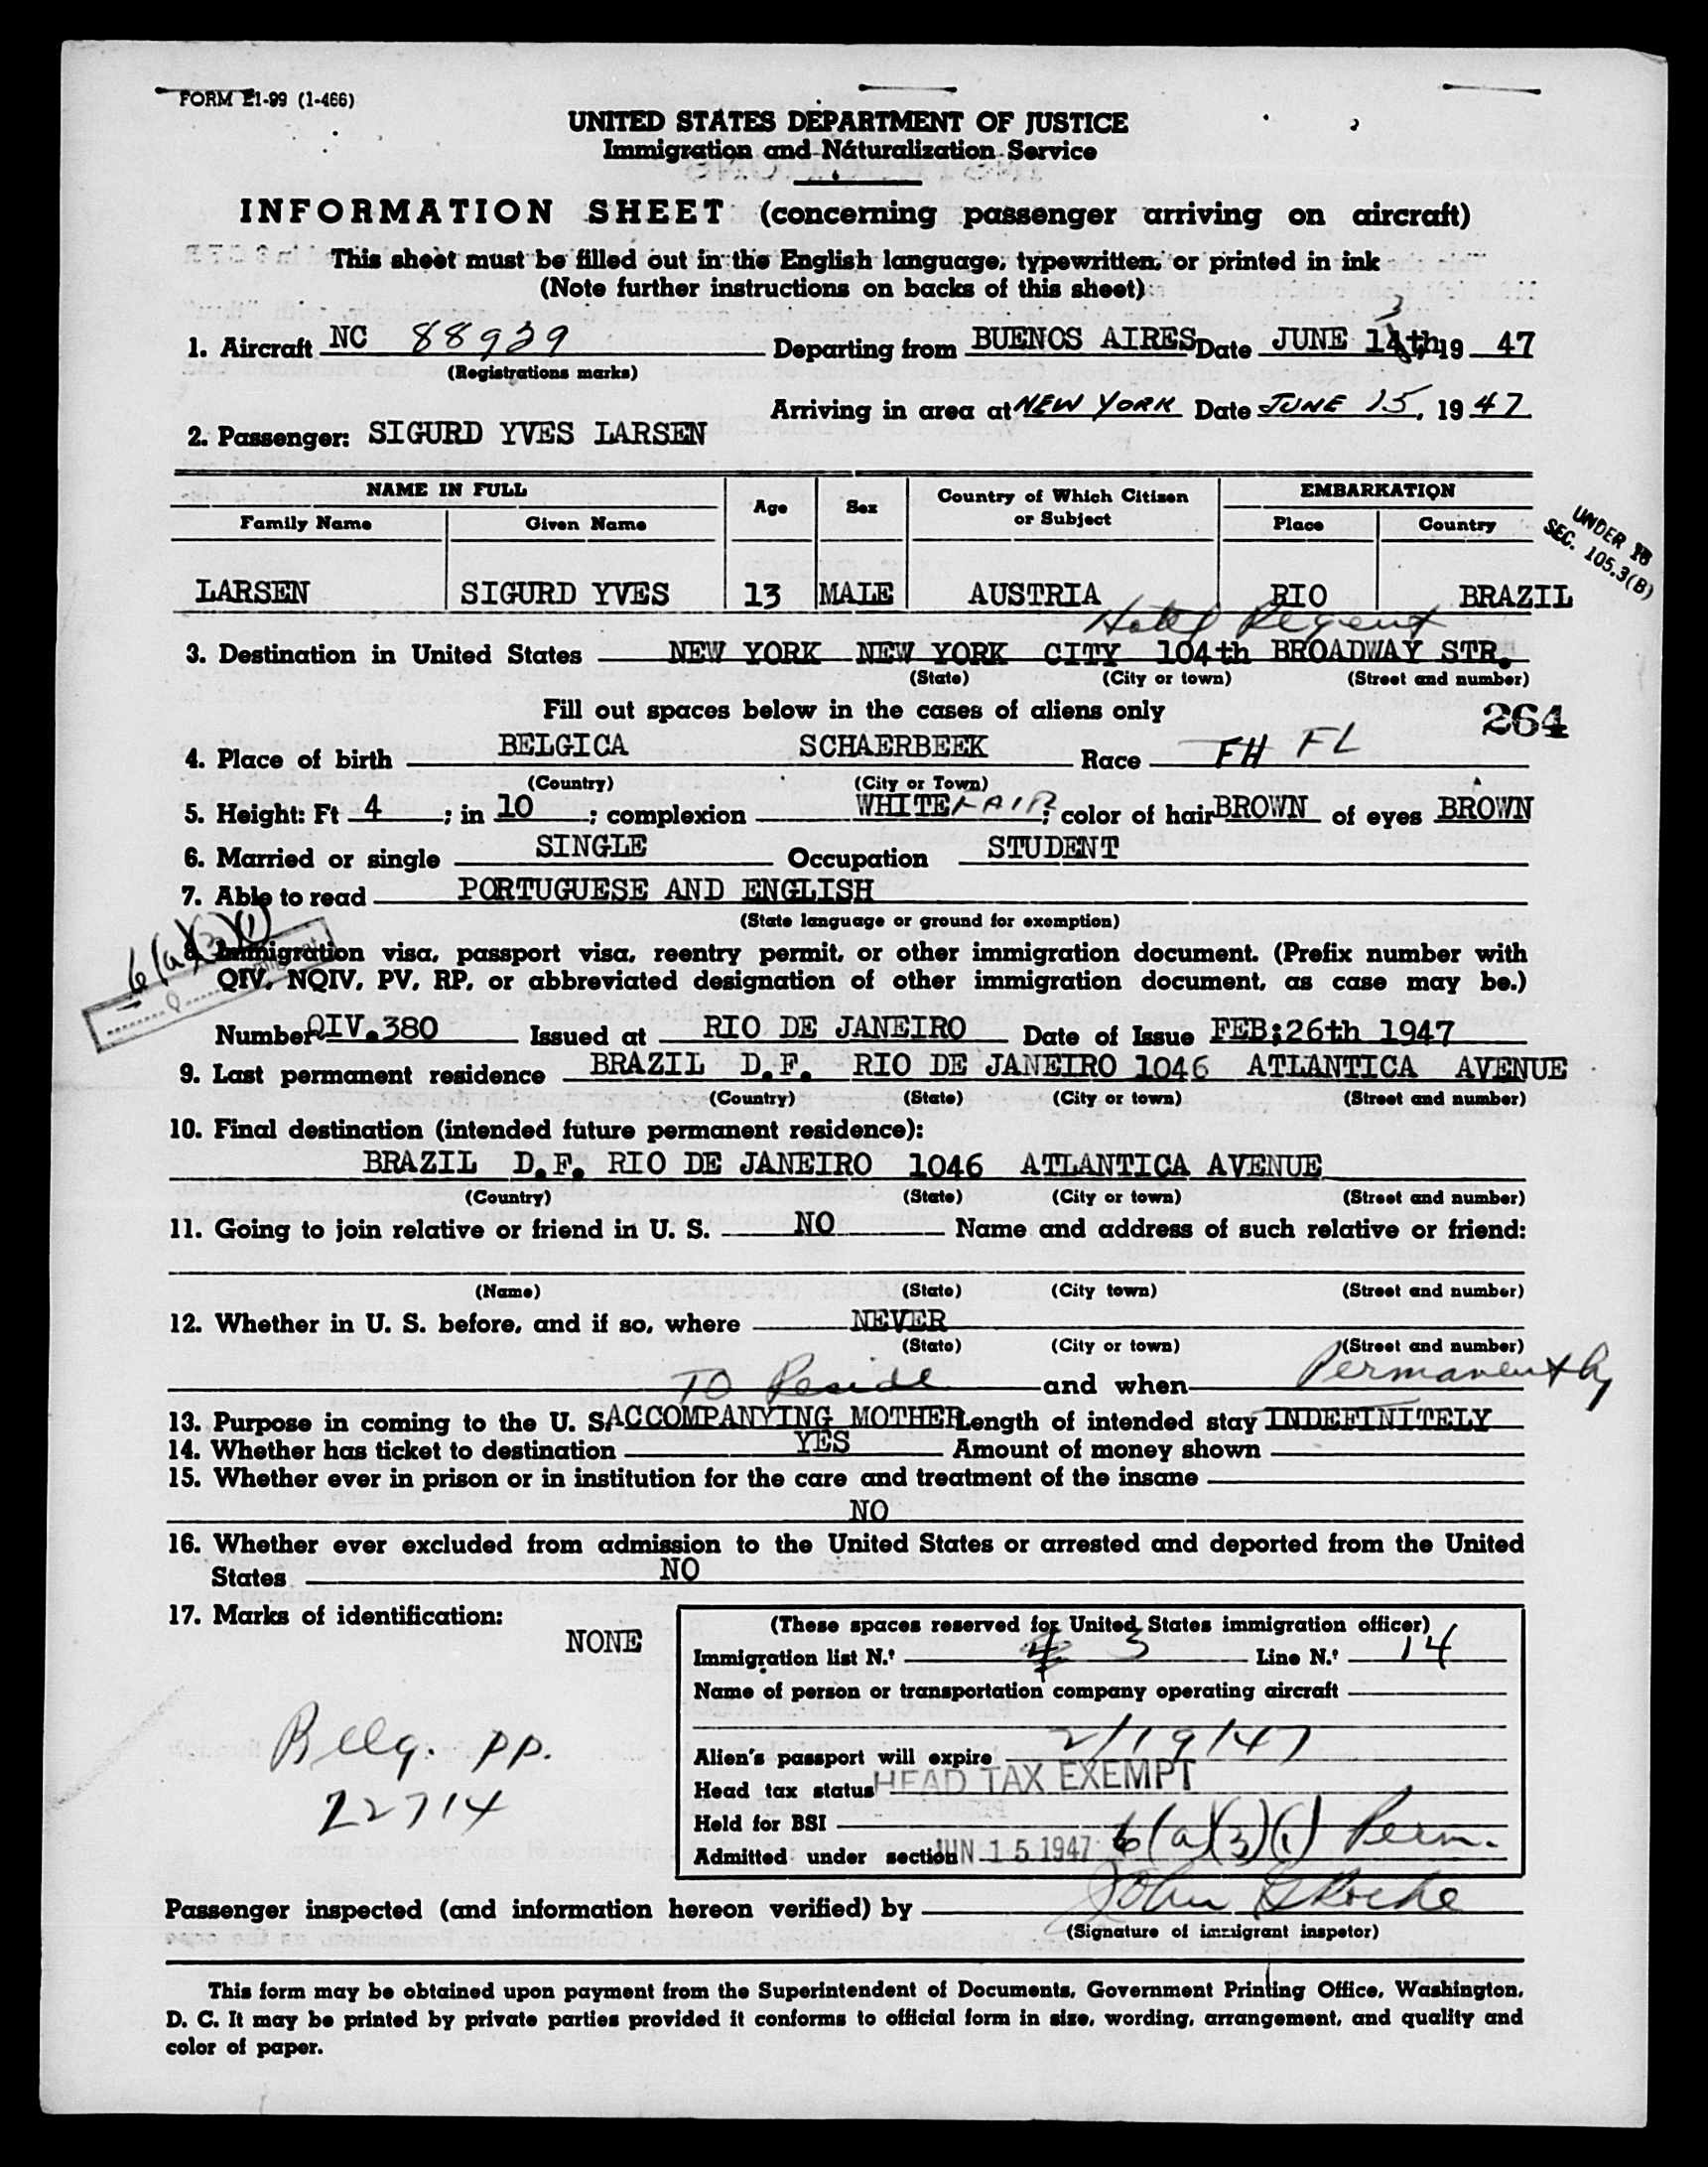 FORM I-99 (1-466)
UNITED STATES DEPARTMENT OF JUSTICE
Immigration and Naturalization Service
INFORMATION SHEET (concerning passenger arriving on aircraft)
This sheet must be filled out in the English language, typewritten, or printed in ink
(Note further instructions on backs of this sheet)
1. Aircraft NC 88939 Departing from BUENOS AIRES Date JUNE 13th, 19 47
(Registrations marks)
Arriving in area at NEW YORK Date JUNE 15, 19 47
2. Passenger: SIGURD YVES LARSEN
NAME IN FULL Age Sex Country of Which Citizen or Subject EMBARKATION
Family Name Given Name Place Country
UNDER 18
SEC. 105.3(B)
LARSEN SIGURD YVES 13 MALE AUSTRIA RIO BRAZIL
Hotel Regent
3. Destination in United States NEW YORK NEW YORK CITY 104th BROADWAY STR.
(State) (City or town) (Street and number)
Fill out spaces below in the cases of aliens only 264
4. Place of birth BELGICA SCHAERBEEK Race FH FL
(Country) (City or Town)
5. Height: Ft 4 ; in 10 ; complexion WHITE FAIR ; color of hair BROWN of eyes BROWN
6. Married or single SINGLE Occupation STUDENT
7. Able to read PORTUGUESE AND ENGLISH
(State language or ground for exemption)
6(a)(3)(1)
8. Immigration visa, passport visa, reentry permit, or other immigration document. (Prefix number with
QIV, NQIV, PV, RP, or abbreviated designation of other immigration document, as case may be.)
Number QIV.380 Issued at RIO DE JANEIRO Date of Issue FEB;26th 1947
9. Last permanent residence BRAZIL D.F. RIO DE JANEIRO 1046 ATLANTICA AVENUE
(Country) (State) (City or town) (Street and number)
10. Final destination (intended future permanent residence):
BRAZIL D.F. RIO DE JANEIRO 1046 ATLANTICA AVENUE
(Country) (State) (City or town) (Street and number)
11. Going to join relative or friend in U. S. NO Name and address of such relative or friend:
(Name) (State) (City town) (Street and number)
12. Whether in U. S. before, and if so, where NEVER
(State) (City or town) (Street and number)
TO Reside and when Permanently
13. Purpose in coming to the U. S. ACCOMPANYING MOTHER Length of intended stay INDEFINITELY
14. Whether has ticket to destination YES Amount of money shown
15. Whether ever in prison or in institution for the care and treatment of the insane
NO
16. Whether ever excluded from admission to the United States or arrested and deported from the United
States NO
17. Marks of identification:
NONE
(These spaces reserved for United States immigration officer)
Immigration list N.º 4 3 Line N.º 14
Name of person or transportation company operating aircraft
Belg. pp.
22714
Alien's passport will expire 2/19/47
Head tax status HEAD TAX EXEMPT
Held for BSI
Admitted under section JUN 15 1947 6(a)(3)(1) Perm.
Passenger inspected (and information hereon verified) by John
(Signature of immigrant inspetor)
This form may be obtained upon payment from the Superintendent of Documents, Government Printing Office, Washington,
D. C. It may be printed by private parties provided it conforms to official form in size, wording, arrangement, and quality and
color of paper.